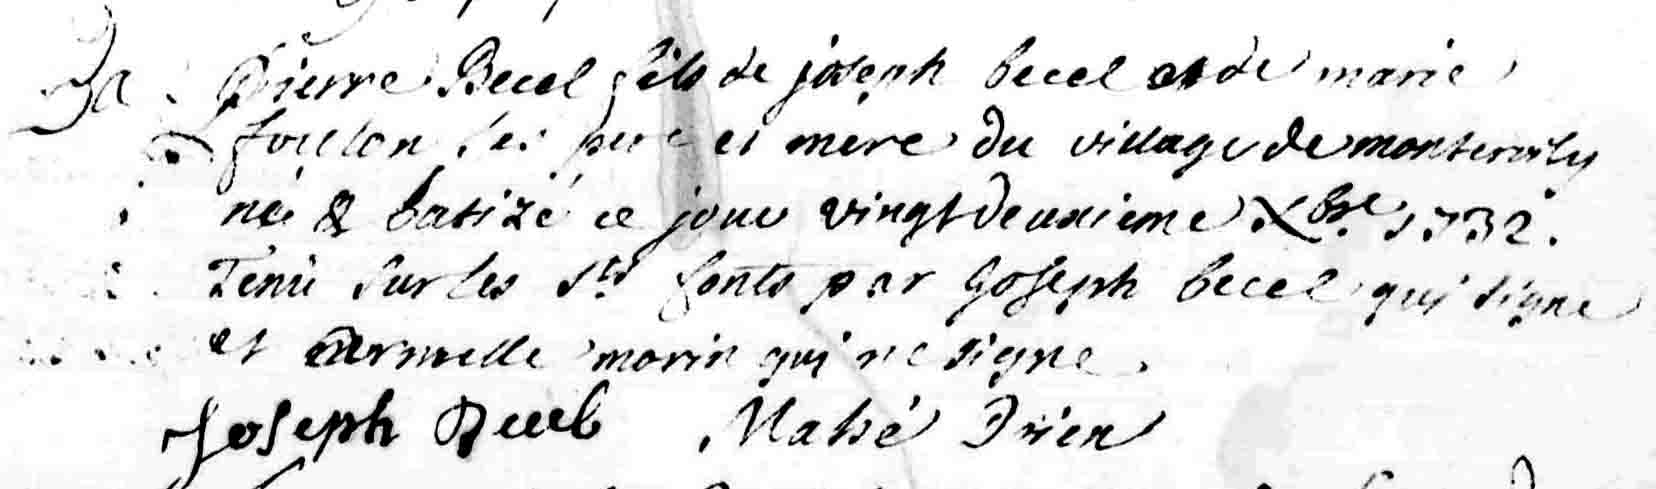 Pierre Becel fils de joseph becel et de marie
foullon ses pere et mere du village de
né & batizé ce jour vingt deuxieme Xbre 1732.
Tenu sur les sts fonts par Joseph becel qui signe
et armelle morin qui ne signe.
Joseph Becel Mahé Prien